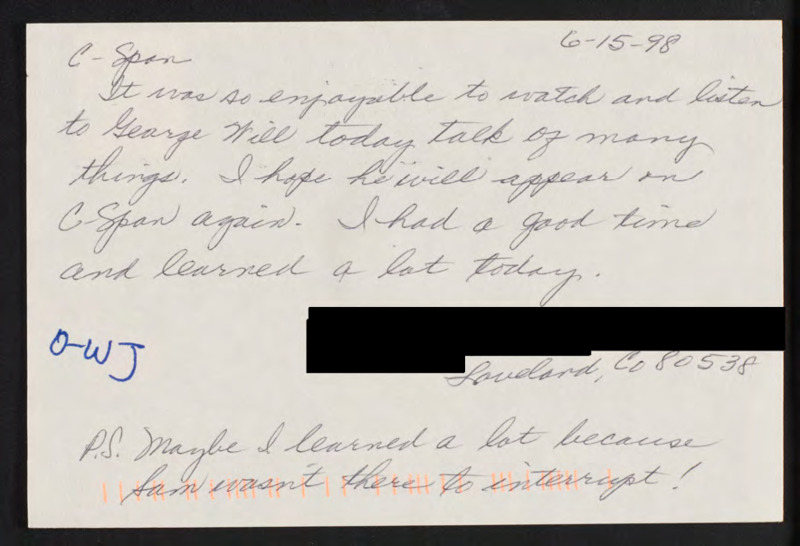 6-15-98
C-Span
It was so enjoyable to watch and listen
to George Will today talk of many
things. I hope he will appear on
C-Span again. I had a good time
and learned a lot today.
O-WJ
Loveland, Co 80538
P.S. Maybe I learned a lot because
Sam wasn't there to interrupt!